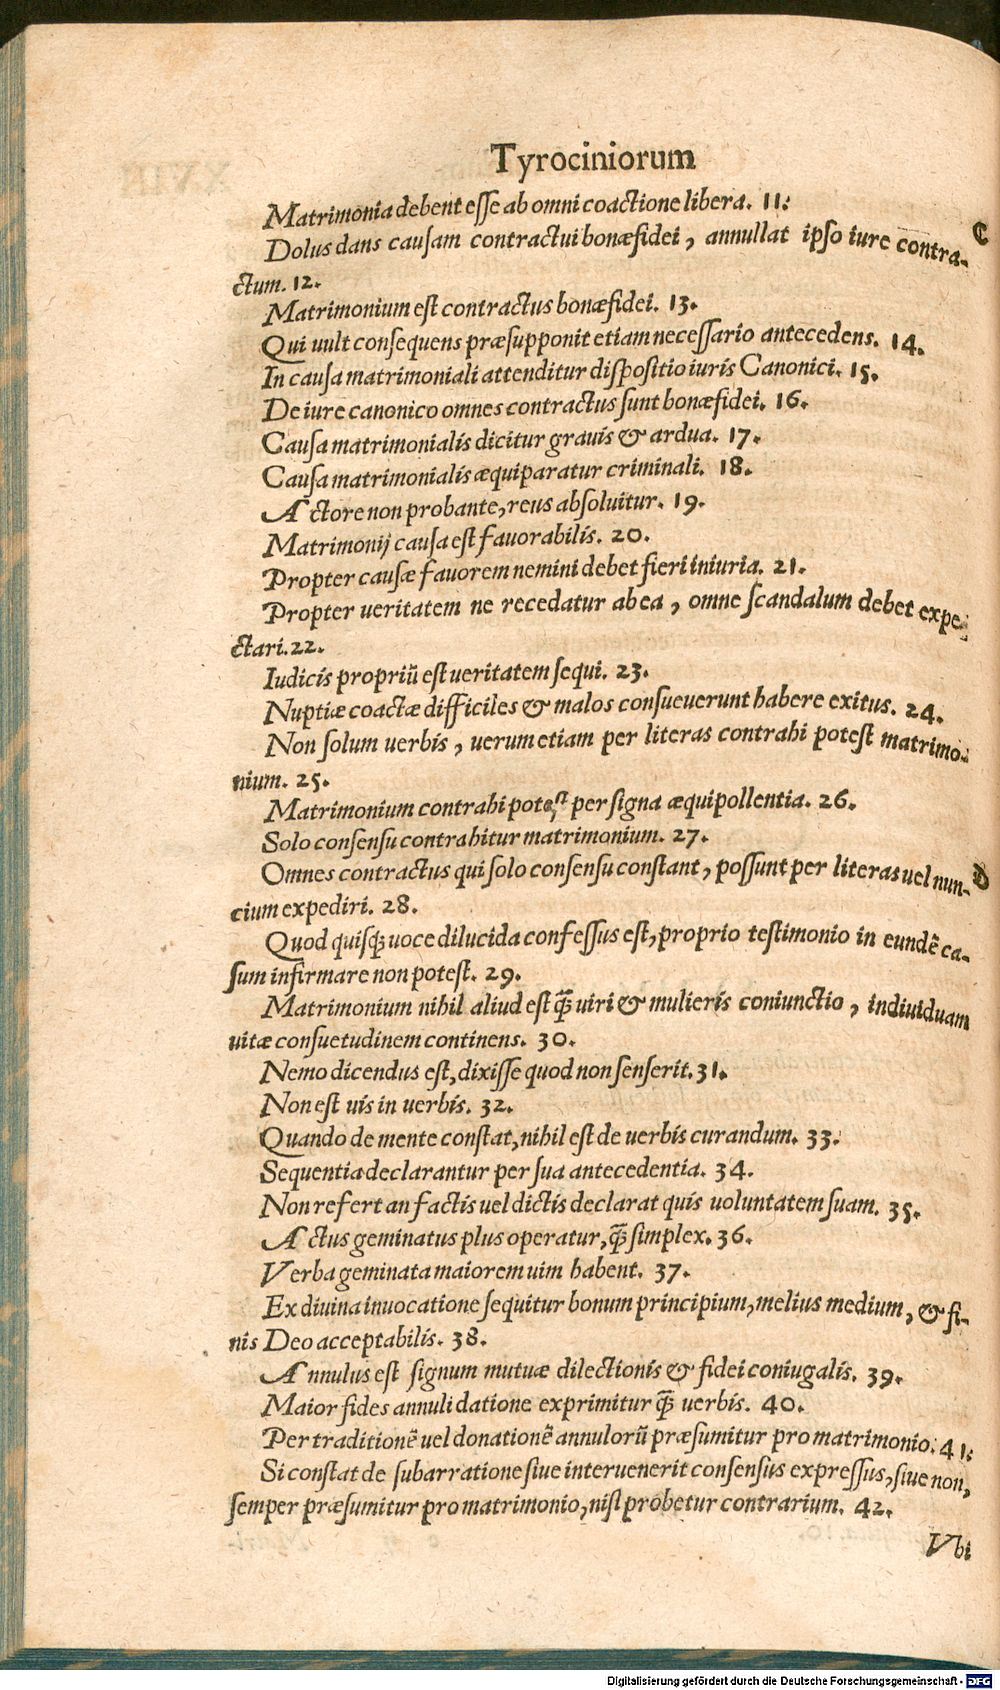 Tyrociniorum
Matrimonia debent esse ab omni coactione libera. 11.
Dolus dans causam contractui bonæ fidei, annullat ipso iure contra- C
ctum. 12.
Matrimonium est contractus bonæ fidei. 13.
Qui uult consequens præsupponit etiam necessario antecedens. 14.
In causa matrimoniali attenditur dispositio iuris Canonici. 15.
De iure canonico omnes contractus sunt bonæ fidei. 16.
Causa matrimonialis dicitur grauis & ardua. 17.
Causa matrimonialis æquiparatur criminali. 18.
Actore non probante, reus absoluitur. 19.
Matrimonij causa est fauorabilis. 20.
Propter causæ fauorem nemini debet fieri iniuria. 21.
Propter ueritatem ne recedatur ab ea, omne scandalum debet expe-
ctari. 22.
Iudicis propriũ est ueritatem sequi. 23.
Nuptiæ coactæ difficiles & malos consueuerunt habere exitus. 24.
Non solum uerbis, uerum etiam per literas contrahi potest matrimo-
nium. 25.
Matrimonium contrahi potest per signa æquipollentia. 26.
Solo consensu contrahitur matrimonium. 27.
Omnes contractus qui solo consensu constant, possunt per literas uel nun- D
cium expediri. 28.
Quod quisq; uoce dilucida confessus est, proprio testimonio in eundẽ ca-
sum infirmare non potest. 29.
Matrimonium nihil aliud est q̃ uiri & mulieris coniunctio, indiuiduam
uitæ consuetudinem continens. 30.
Nemo dicendus est, dixisse quod non senserit. 31.
Non est uis in uerbis. 32.
Quando de mente constat, nihil est de uerbis curandum. 33.
Sequentia declarantur per sua antecedentia. 34.
Non refert an factis uel dictis declarat quis uoluntatem suam. 35.
Actus geminatus plus operatur, q̃ simplex. 36.
Verba geminata maiorem uim habent. 37.
Ex diuina inuocatione sequitur bonum principium, melius medium, & fi-
nis Deo acceptabilis. 38.
Annulus est signum mutuæ dilectionis & fidei coniugalis. 39.
Maior fides annuli datione exprimitur q̃ uerbis. 40.
Per traditionẽ uel donationẽ annulorũ præsumitur pro matrimonio. 41.
Si constat de subarratione siue interuenerit consensus expressus, siue non,
semper præsumitur pro matrimonio, nisi probetur contrarium. 42.
Vbi
Digitalisierung gefördert durch die Deutsche Forschungsgemeinschaft - DFG